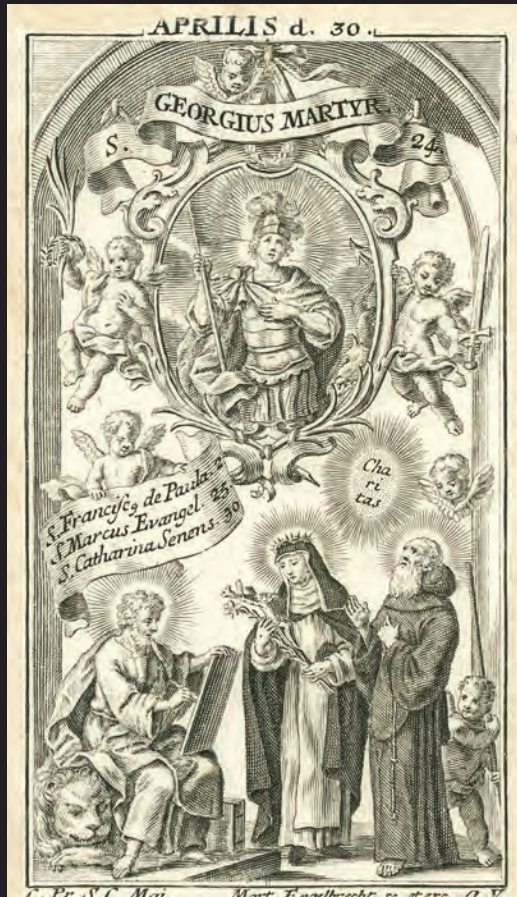 APRILIS d. 30.
GEORGIUS MARTYR.
S. 24.
S. Francisc9 de Paula. 2
S. Marcus Evangel. 25
S. Catharina Senens. 30
Cha
ri
tas
C. Pr. S. C. Maj. Mart. Engelbrecht sc. et exc. A.V.